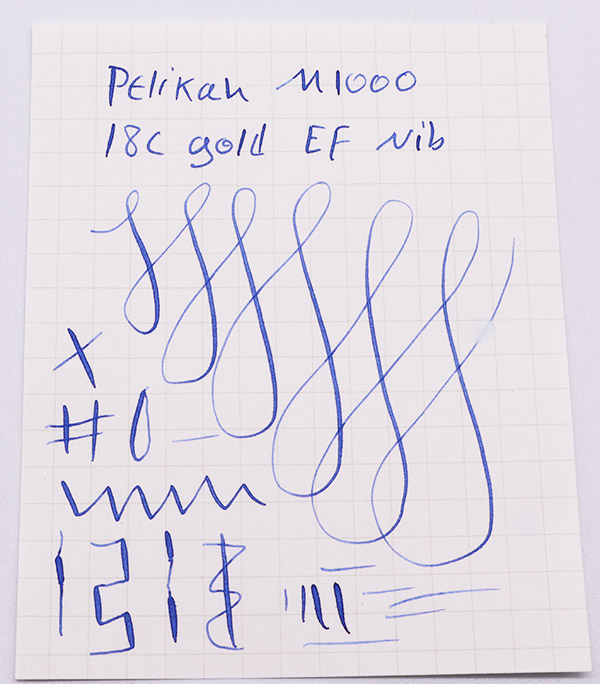 Pelikan M1000
18C gold EF Nib